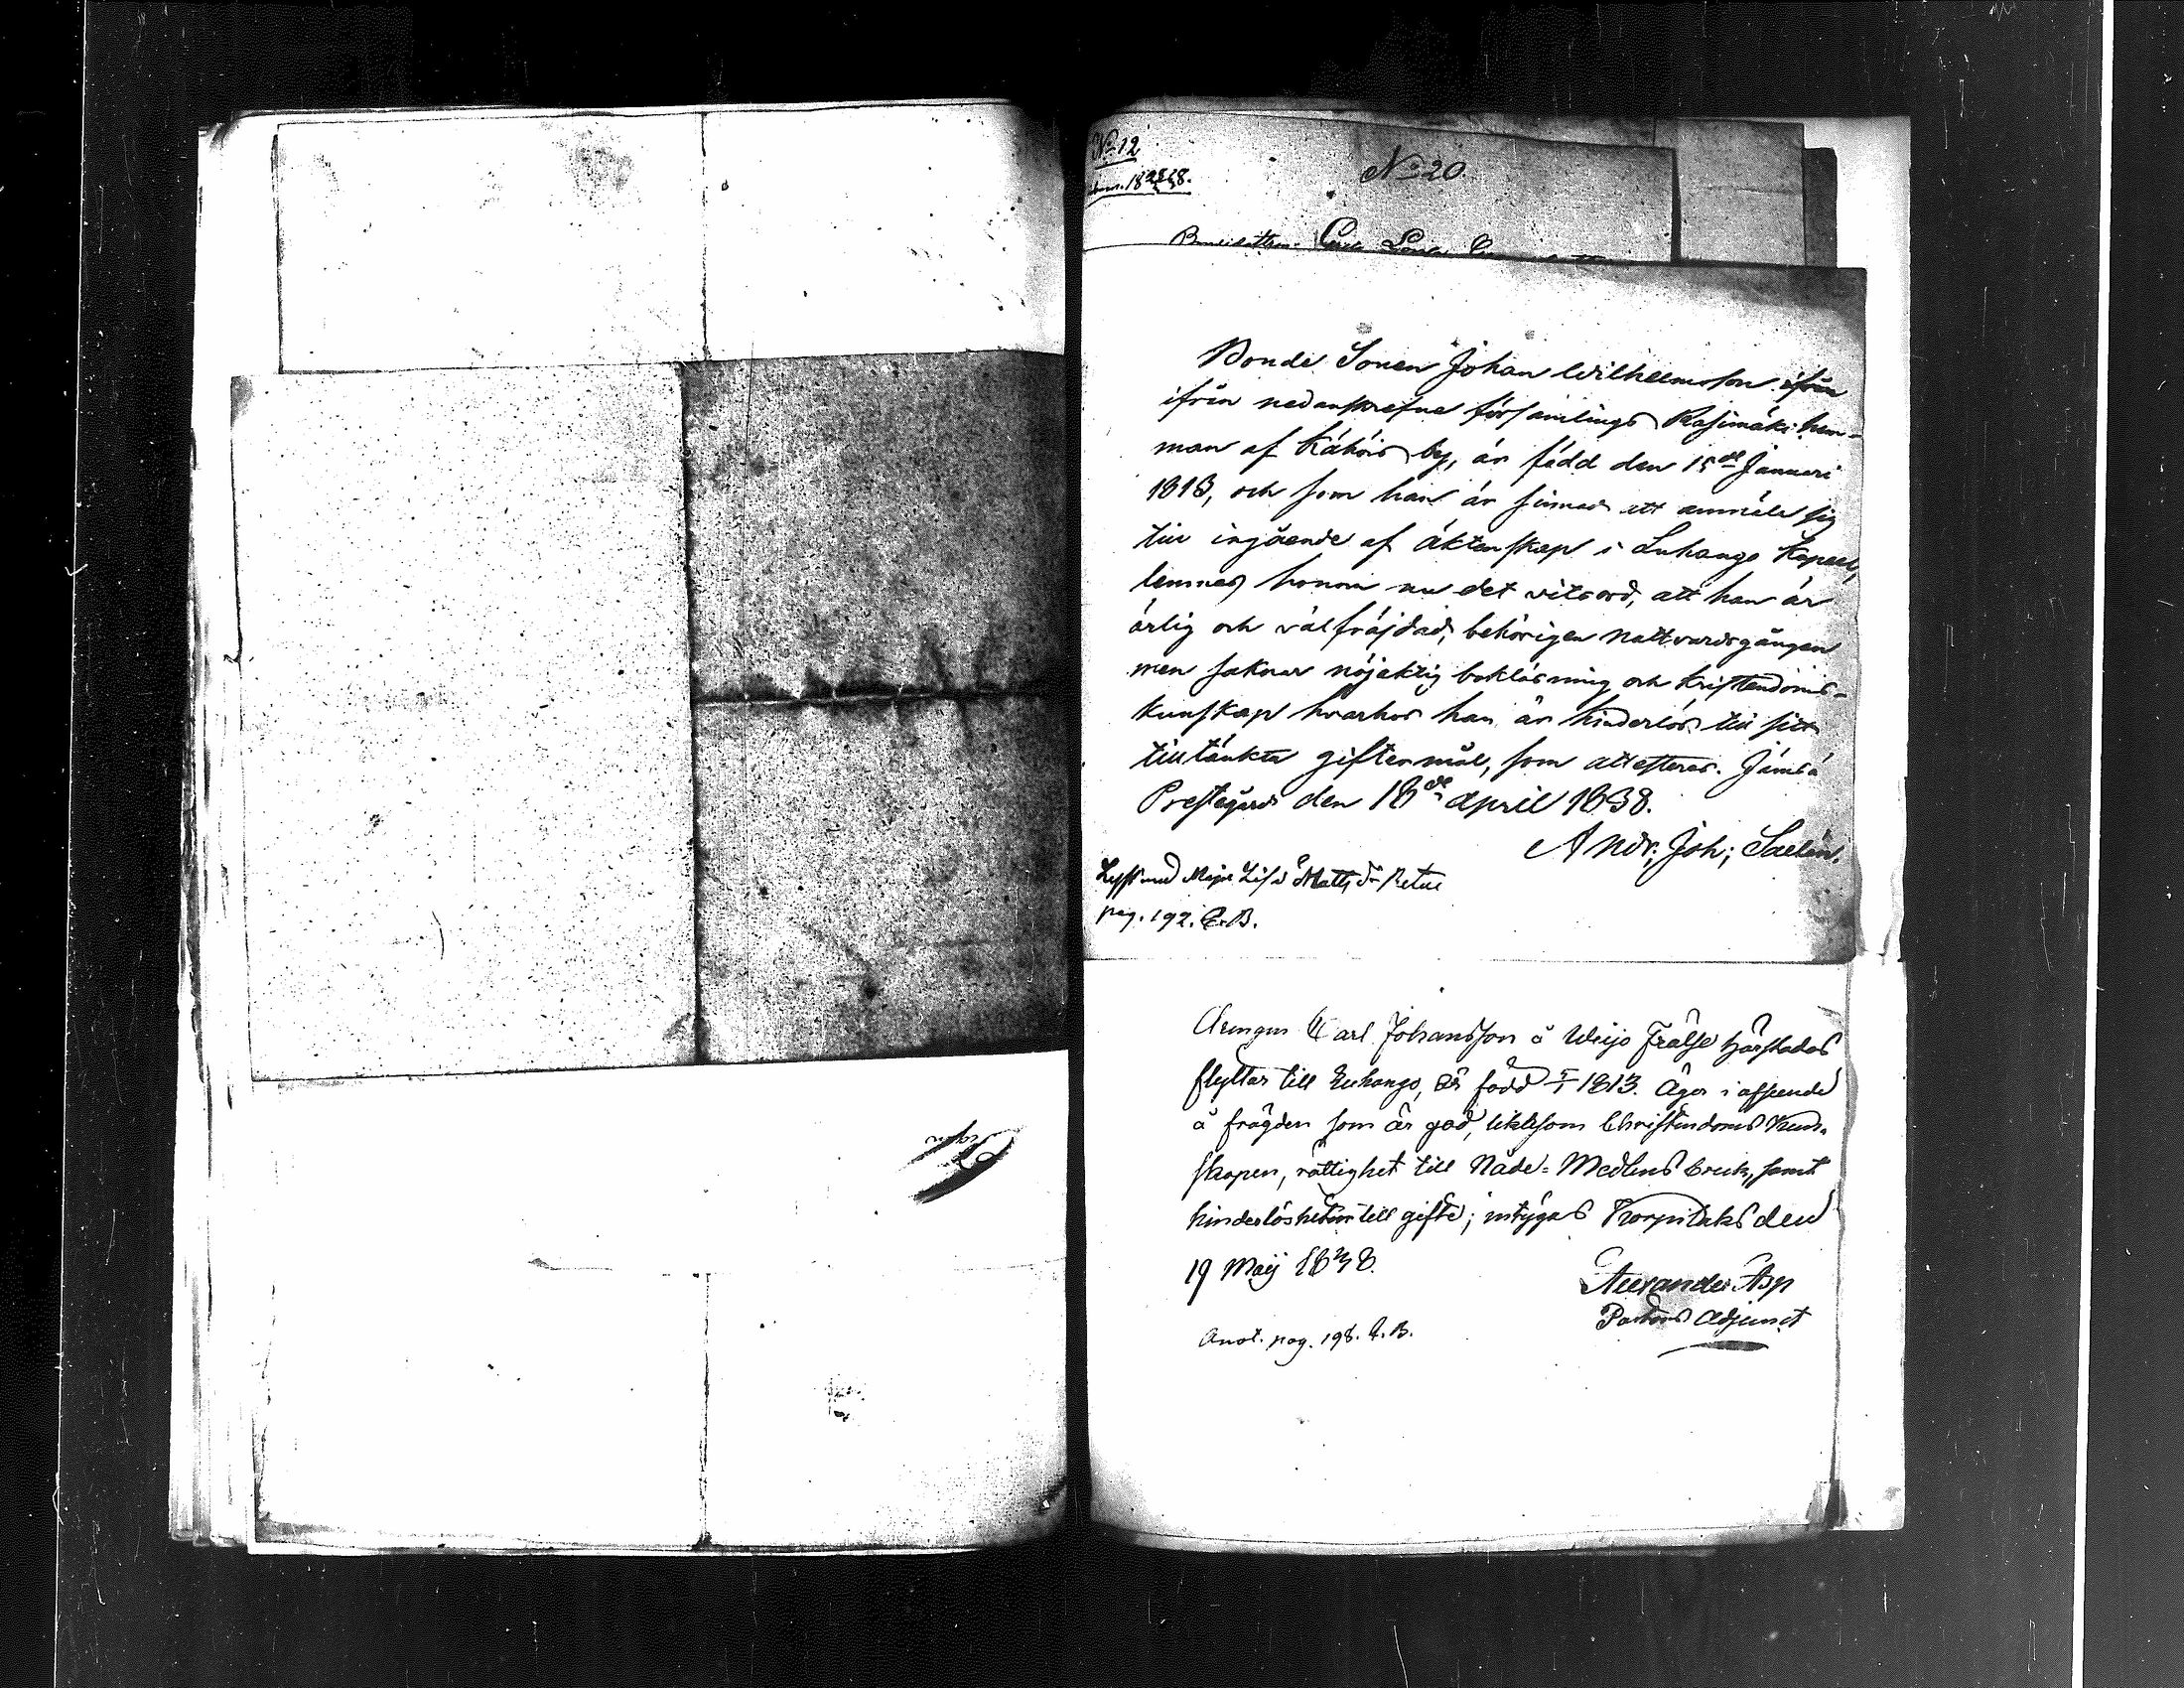 No 12
No 20.
Bonde Sonen Johan Wilhelmsson ifrån
ifrån nedanskrefne församlings Rasimäki hem-
man af Kähöis by, är född den 15de Januari
1818, och som han är sinnad att anmäla sig
till ingående af äktenskap i Luhango Kapell,
lemnas honom nu det vitsord, att han är
ärlig och välfräjdad, behörigen nattvardsgången
men saknar nöjaktig bokläsning och Kristendoms-
kunskap hvarhos han är hinderlös till sitt
tilltänkta giftermål, som attesteras. Jämsä
Prestegård den 18de April 1838.
Andr: Joh: Salin.
Lyst med Maja Lisa Matts dr
pag. 192. C.B.
Drengen Carl Johansson å Weijo Frälse härstädes
flyttar till Luhango, är född 1813. Äger i afseende
å frägden som är god, liksom Christendoms Kun-
skapen, rättighet till Nåde-Medlens bruk, samt
hinderlösheten till gifte; intygas Korpilaks den
19 Maij 1838.
Alexander Asp
Pastors Adjunct
Anot. pag. 198. C.B.